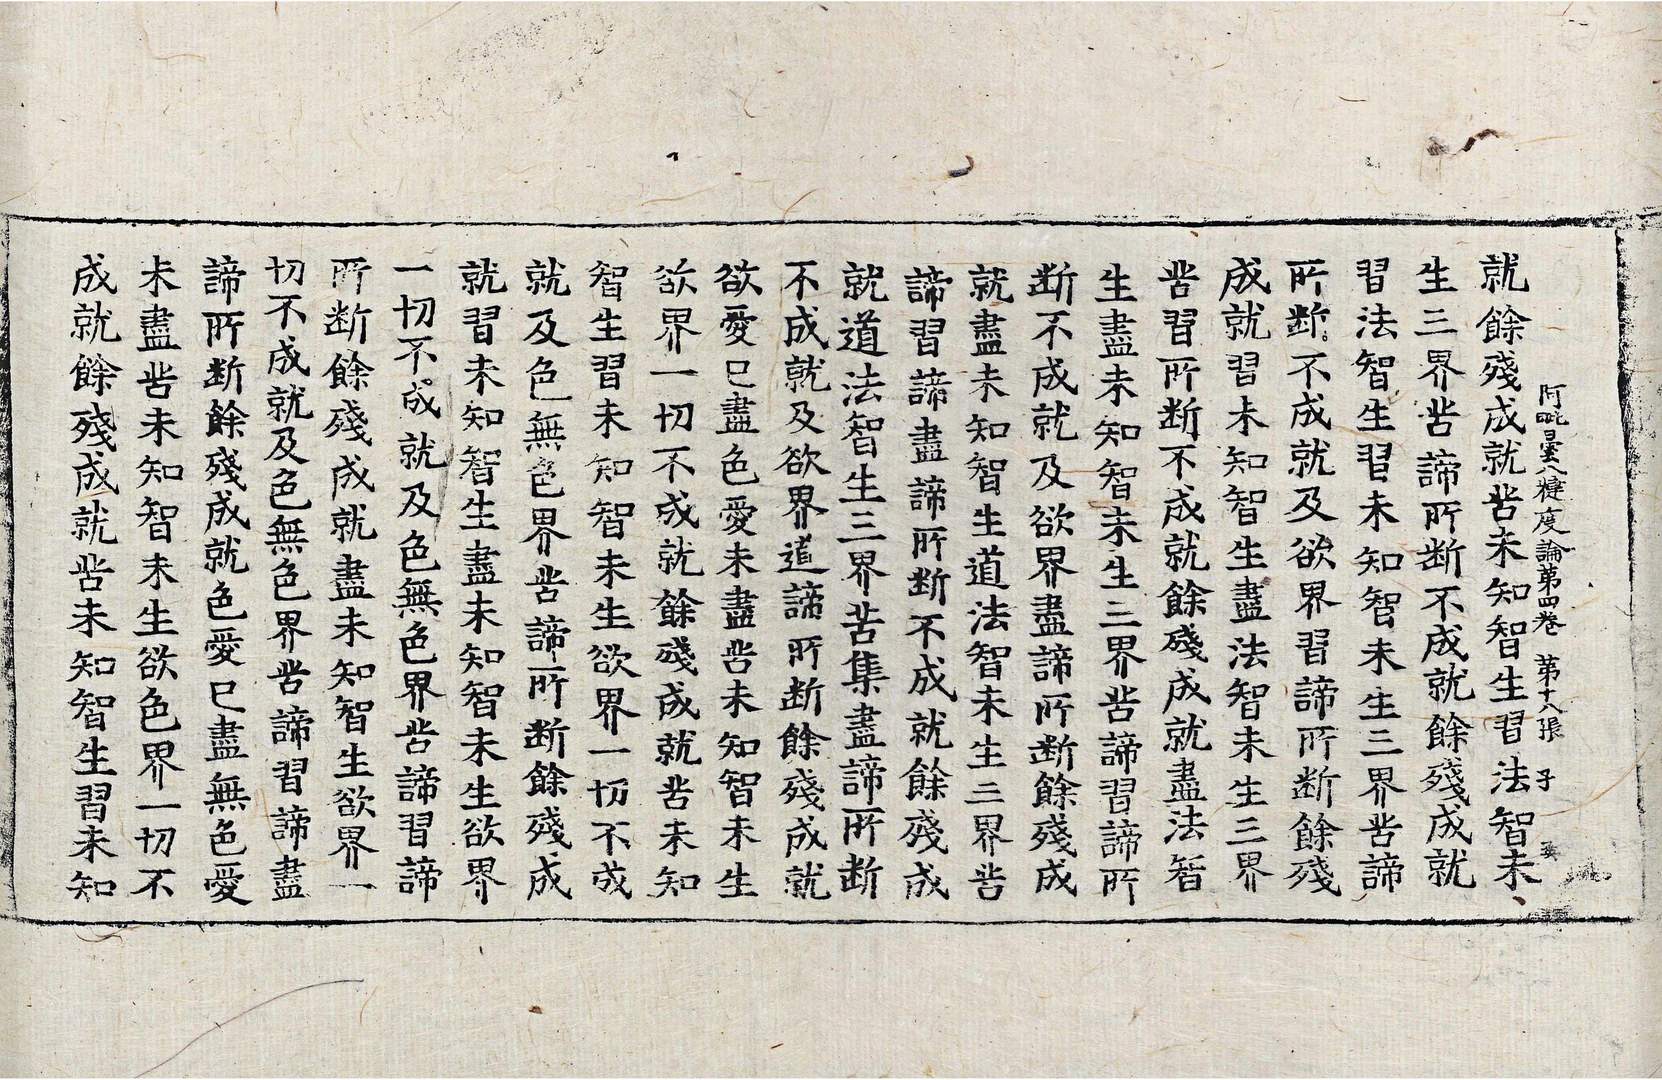 阿毗曇八犍度論第四卷 第十八張 子
就餘殘成就苦未知智生習法智未
生三界苦諦所断不成就餘殘成就
習法智生習未知智未生三界苦諦
所断不成就及欲界習諦所断餘殘
成就習未知智生盡法智未生三界
苦習所断不成就餘殘成就盡法智
生盡未知智未生三界苦諦習諦所
断不成就及欲界盡諦所断餘殘成
就盡未知智生道法智未生三界苦
諦習諦盡諦所断不成就餘殘成
就道法智生三界苦集盡諦所断
不成就及欲界道諦所断餘殘成就
欲愛已盡色愛未盡苦未知智未生
欲界一切不成就餘殘成就苦未知
智生習未知智未生欲界一切不成
就及色無色界苦諦所断餘殘成
就習未知智生盡未知智未生欲界
一切不成就及色無色界苦諦習諦
所断餘殘成就盡未知智生欲界一
切不成就及色無色界苦諦習諦盡
諦所断餘殘成就色愛已盡無色愛
未盡苦未知智未生欲色界一切不
成就餘殘成就苦未知智生習未知